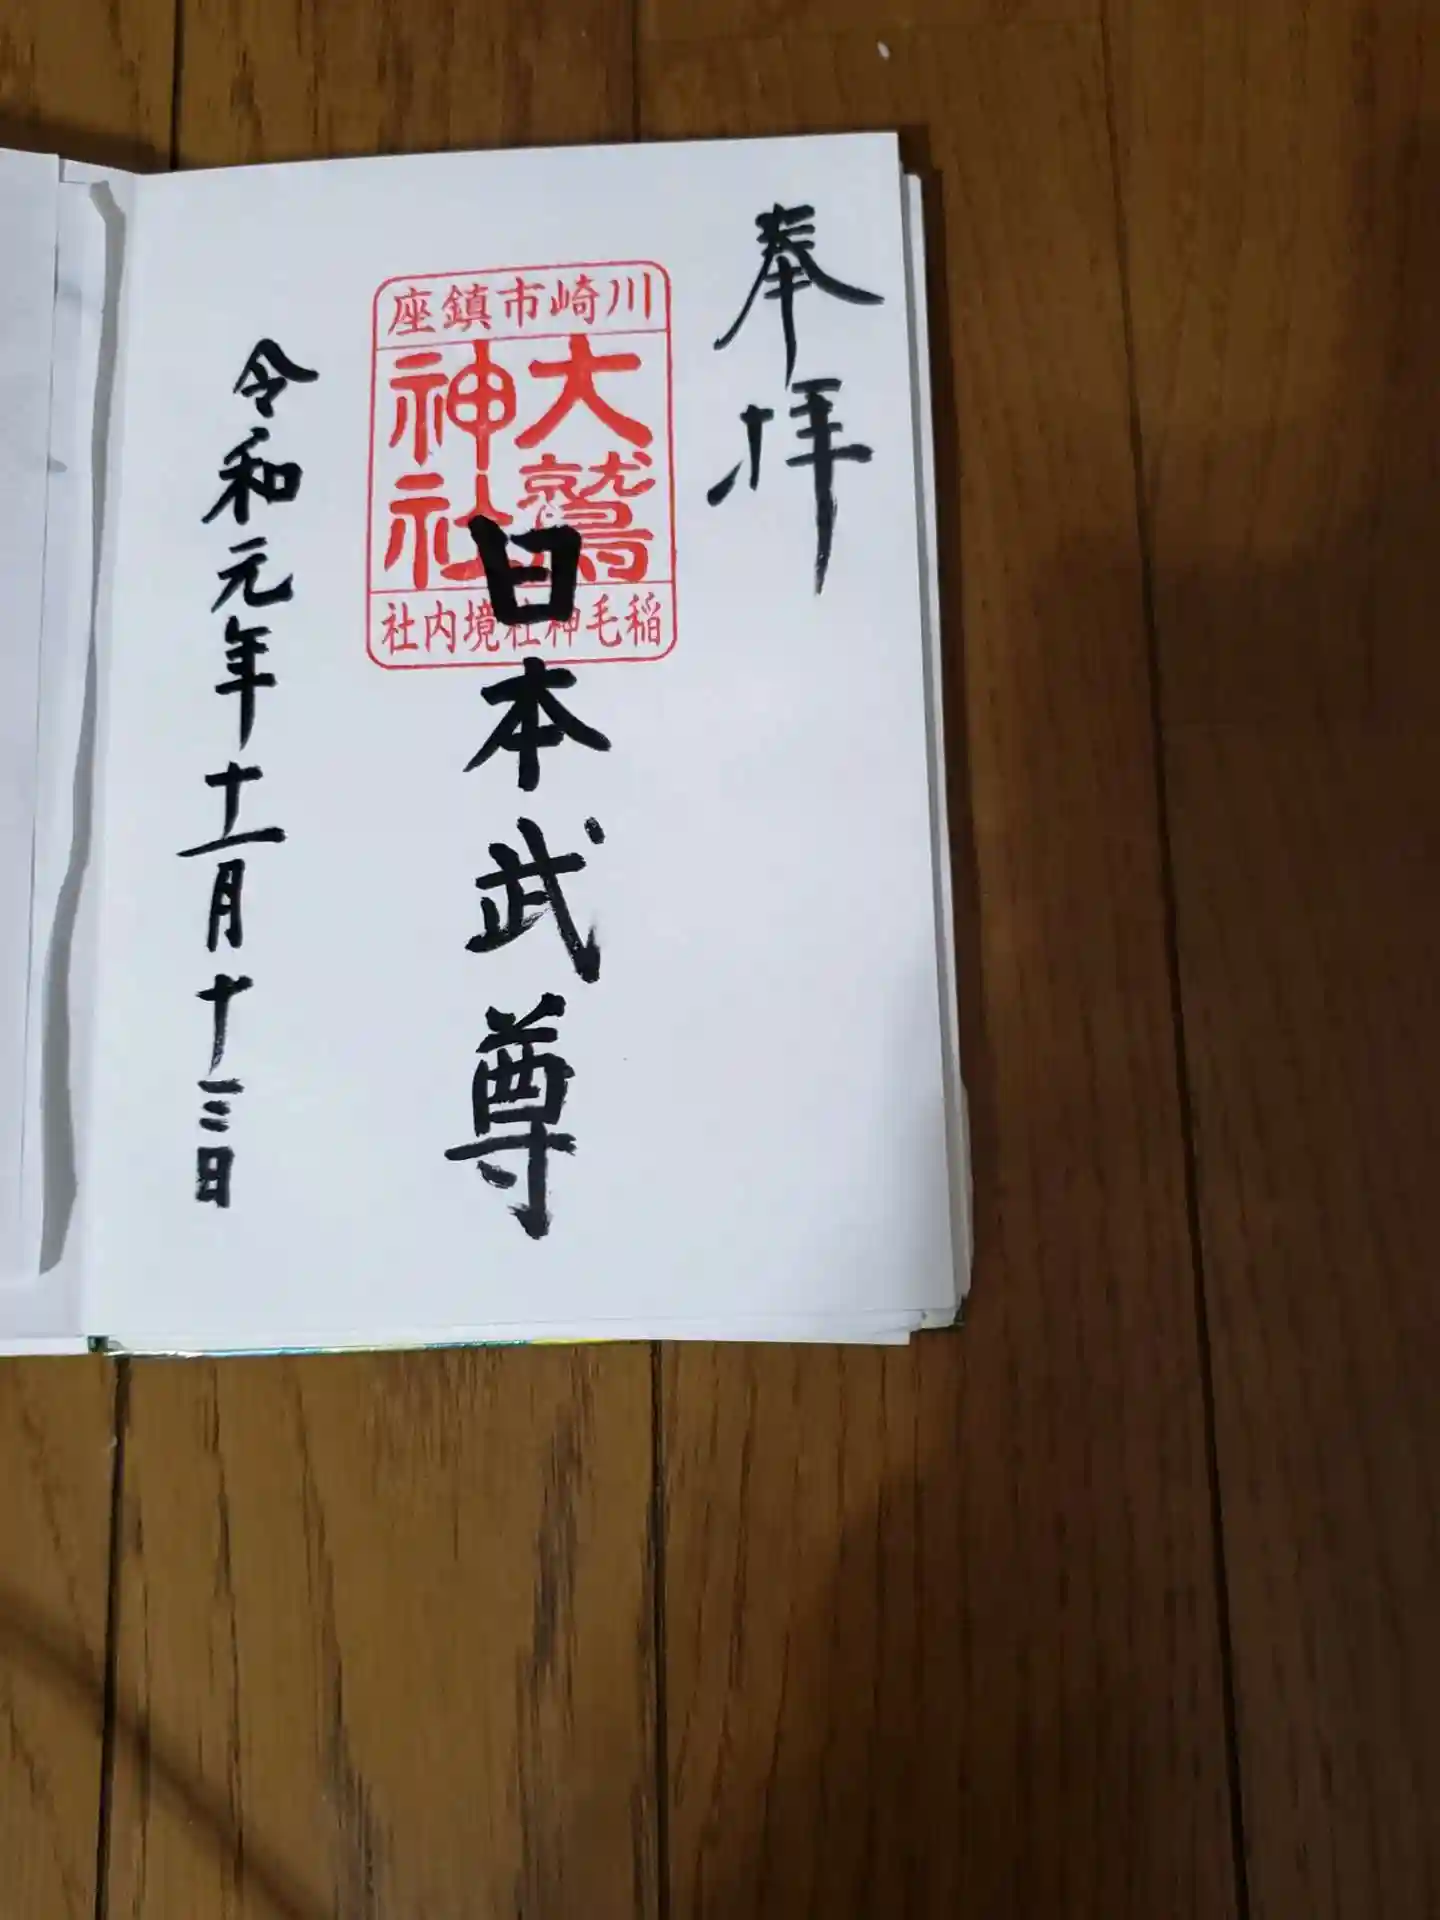 奉拝
川崎市鎮座
大鷲
神社
稲毛神社境内社
日本武尊
令和元年十一月十三日